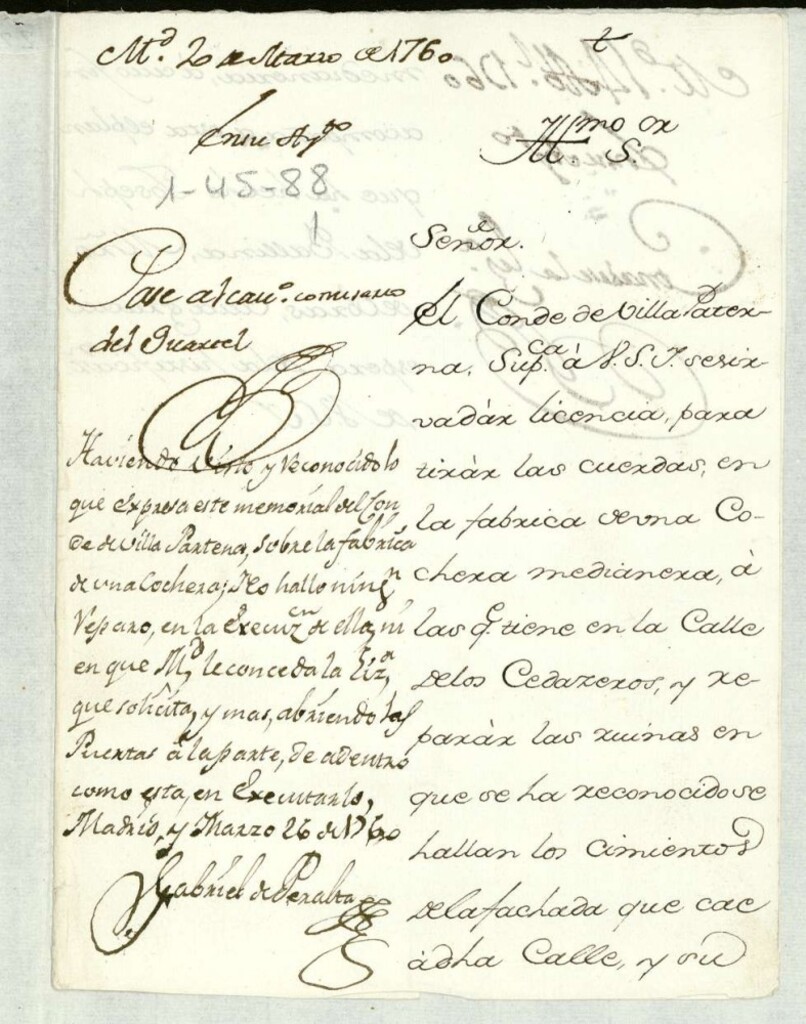 M.d 20 de Marzo de 1760
En su Ay.to
1-45-88
1
Pase al cav.o comisario
del Quartel
Haviendo visto y Reconocido lo
que expresa este memorial del Con
de de Villa Partena, sobre la fabrica
de una Cochera; No hallo ning.n
Reparo, en la Execuz.n de ella, ni
en que M.d le conceda la Liz.a
que solicita, y mas, abriendo las
Puertas à la parte, de adentro
como esta, en Executarlo,
Madrid, y Marzo 26 de 1760
Gabriel de Peralta
t
Yllmo or
M. S.
Señor.
El Conde de Villa Pater-
na, Sup.ca à V. S. Y. se sir-
va dár licencia, para
tirár las cuerdas, en
la fabrica de una Co-
chera medianera, à
las q.e tiene en la Calle
de los Cedazeros, y re-
parár las ruinas en
que se ha reconocido se
hallan los cimientos
de la fachada que cae
à dha Calle, y su